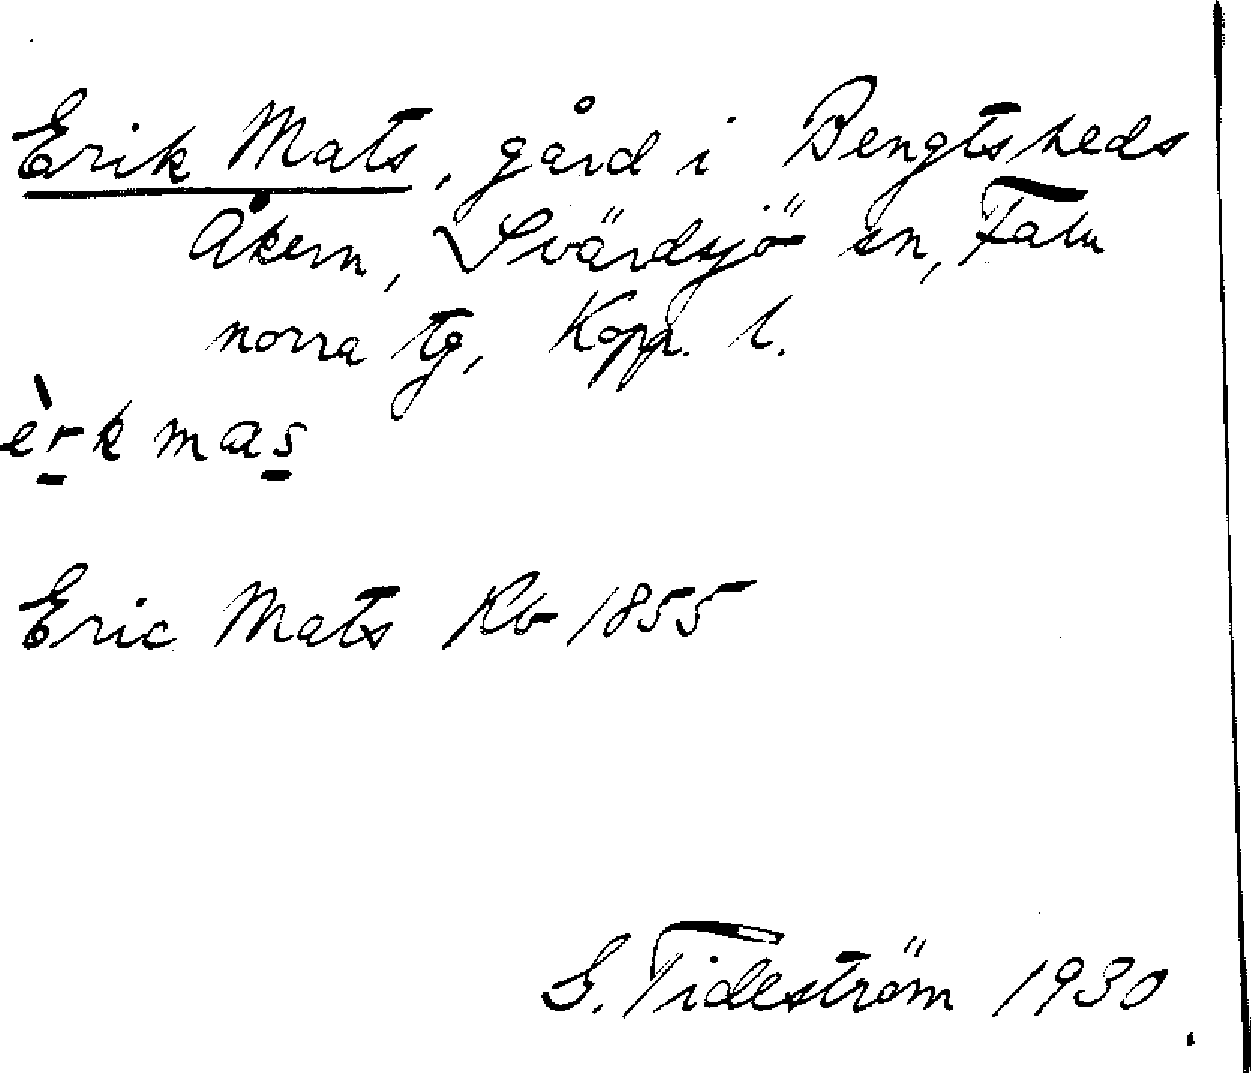 Erik Mats, gård i Bengtsheds
Åkern, Svärdsjö sn, Falu
norra tg, Kopp. l.
èrk mas
Eric Mats Rb 1855
G. Tideström 1930